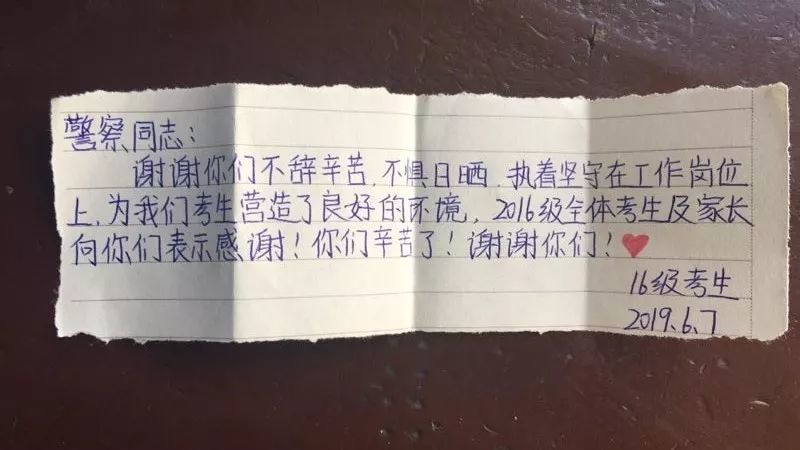 警察同志：
谢谢你们不辞辛苦，不惧日晒，执着坚守在工作岗位
上，为我们考生营造了良好的环境，2016级全体考生及家长
向你们表示感谢！你们辛苦了！谢谢你们！
16级考生
2019.6.7